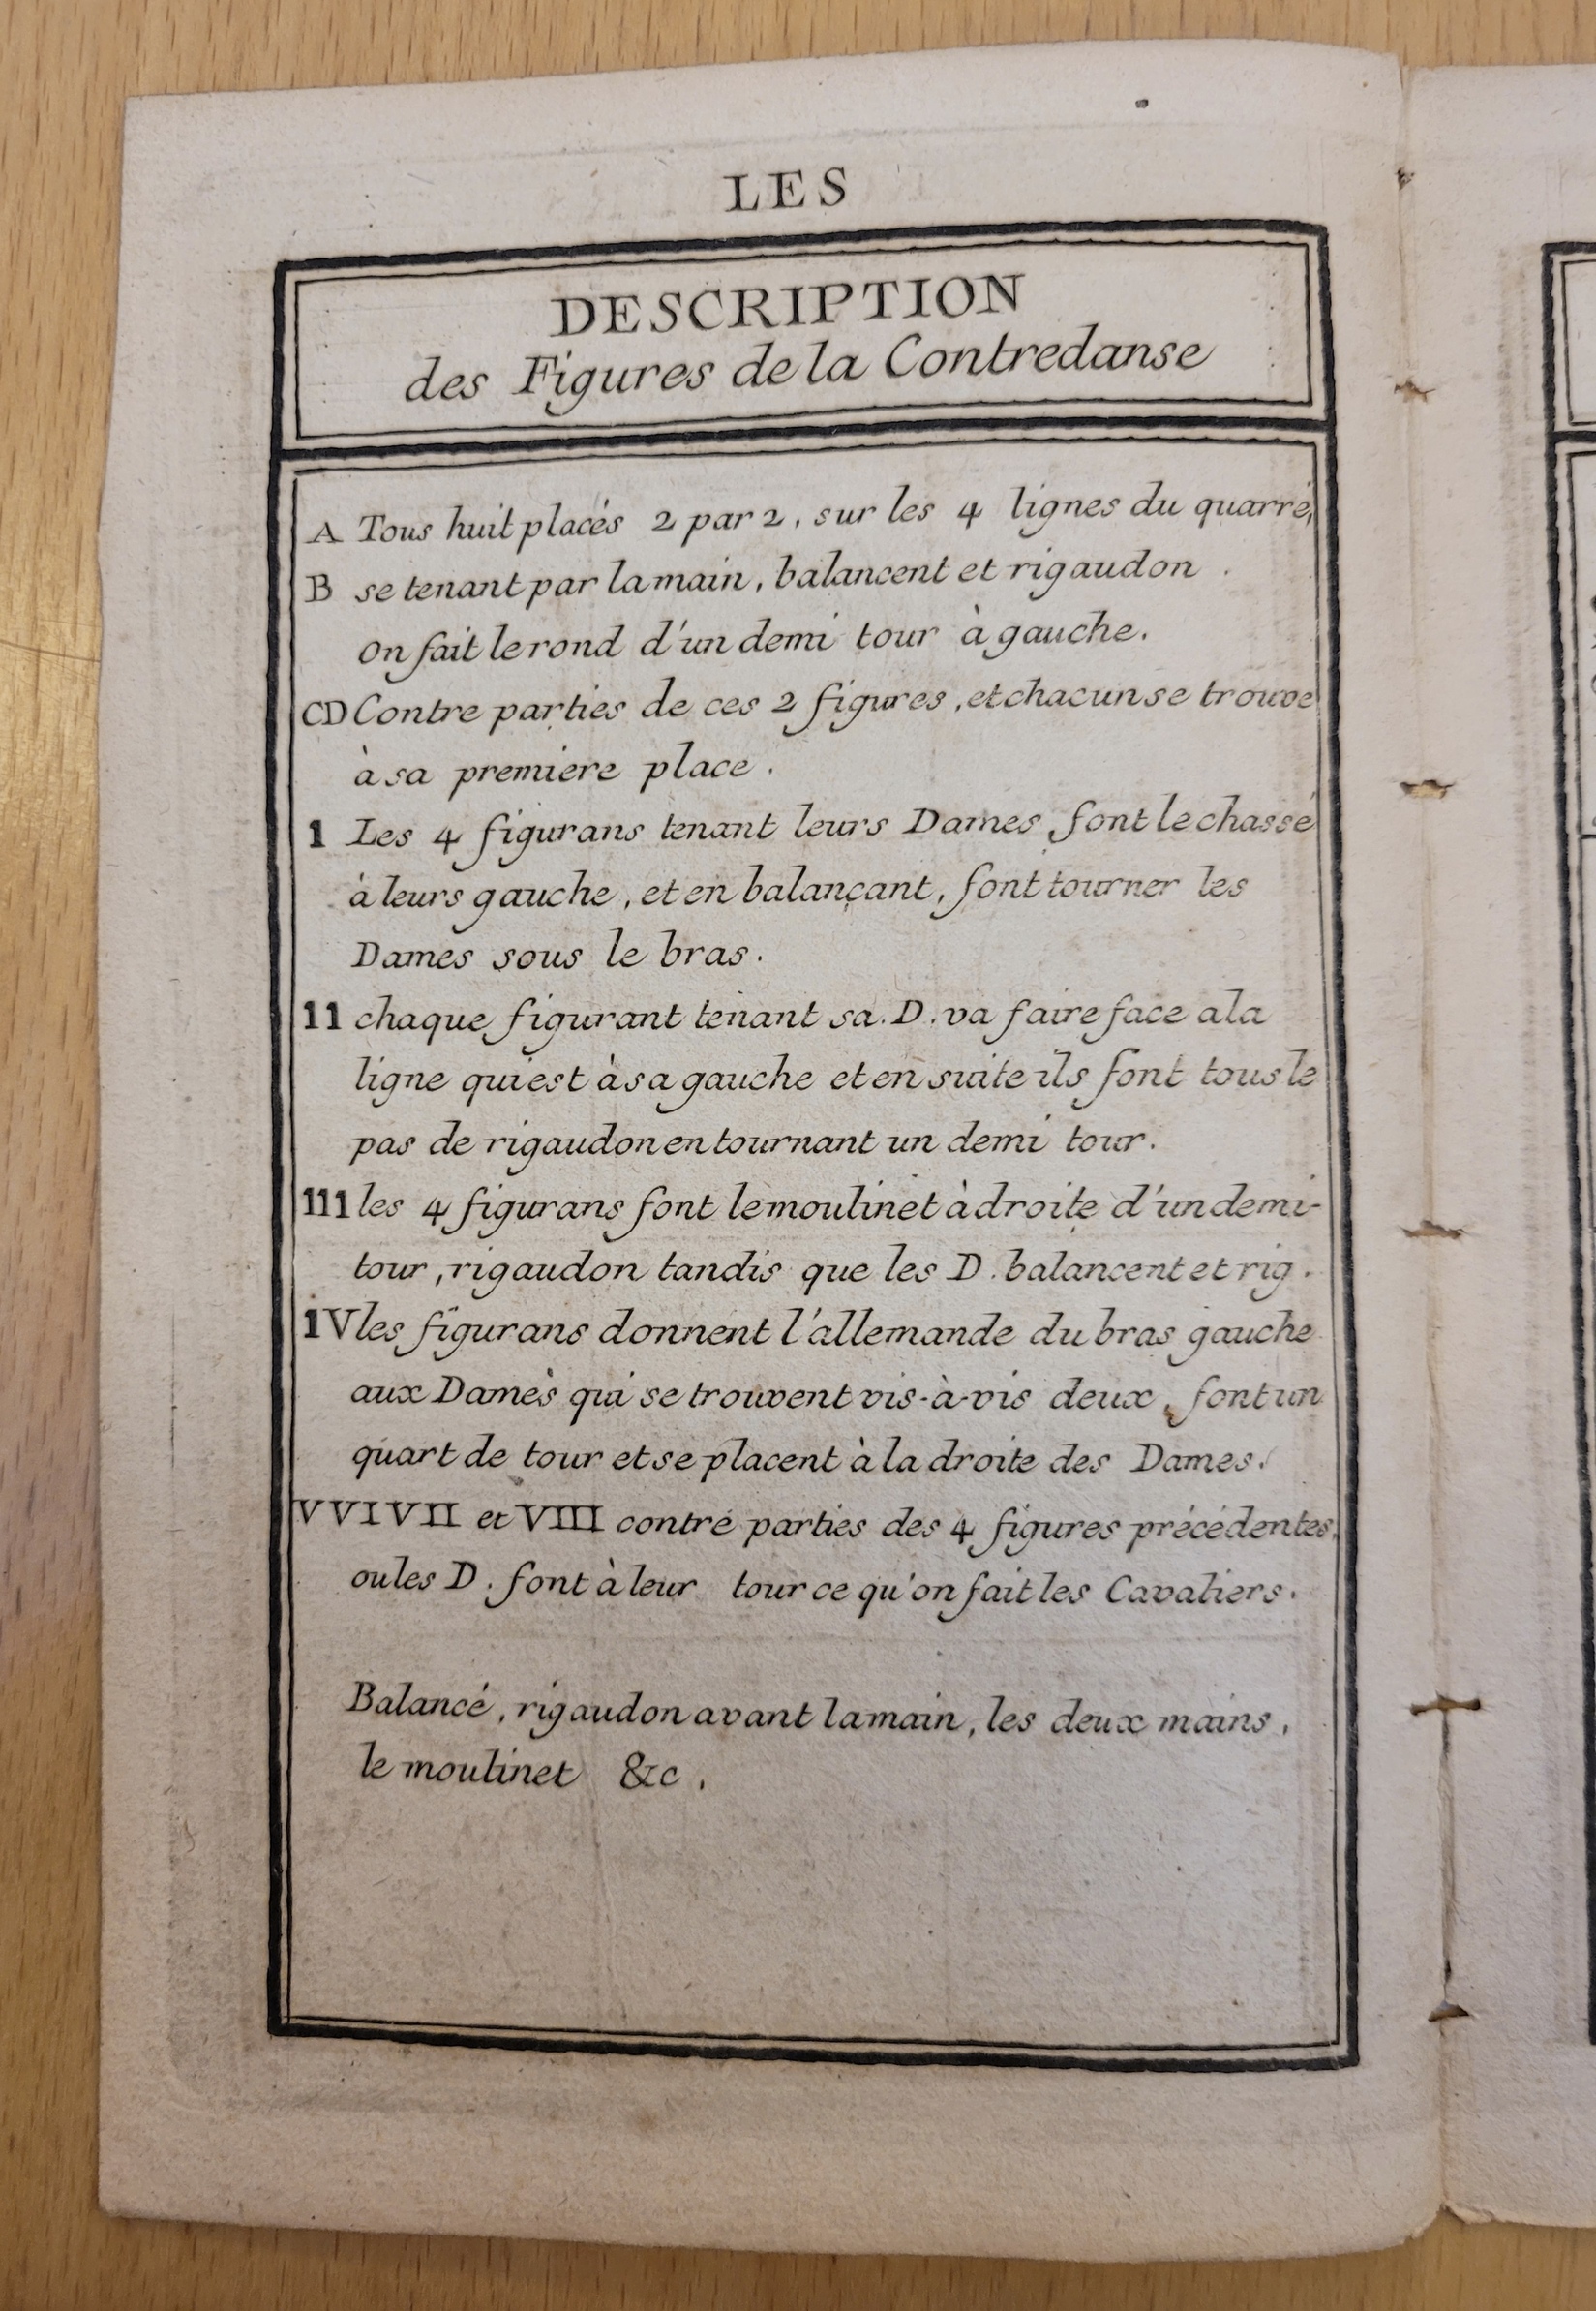 LES
DESCRIPTION
des Figures de la Contredanse
A Tous huit placés 2 par 2, sur les 4 lignes du quarré,
B se tenant par la main, balancent et rigaudon.
on fait le rond d'un demi tour à gauche.
CD Contre parties de ces 2 figures, et chacun se trouve
à sa premiere place.
1 Les 4 figurans tenant leurs Dames, font le chassé
à leurs gauche, et en balançant, font tourner les
Dames sous le bras.
11 chaque figurant tenant sa. D. va faire face a la
ligne qui est à sa gauche et en suite ils font tous le
pas de rigaudon en tournant un demi tour.
111 les 4 figurans font le moulinet à droite d'un demi-
tour, rigaudon tandis que les D. balancent et rig.
1V les figurans donnent l'allemande du bras gauche
aux Dames qui se trouvent vis-à-vis deux, font un
quart de tour et se placent à la droite des Dames.
V VI VII et VIII contre parties des 4 figures précédentes,
ou les D. font à leur tour ce qu'on fait les Cavaliers.
Balancé, rigaudon avant la main, les deux mains,
le moulinet &c.